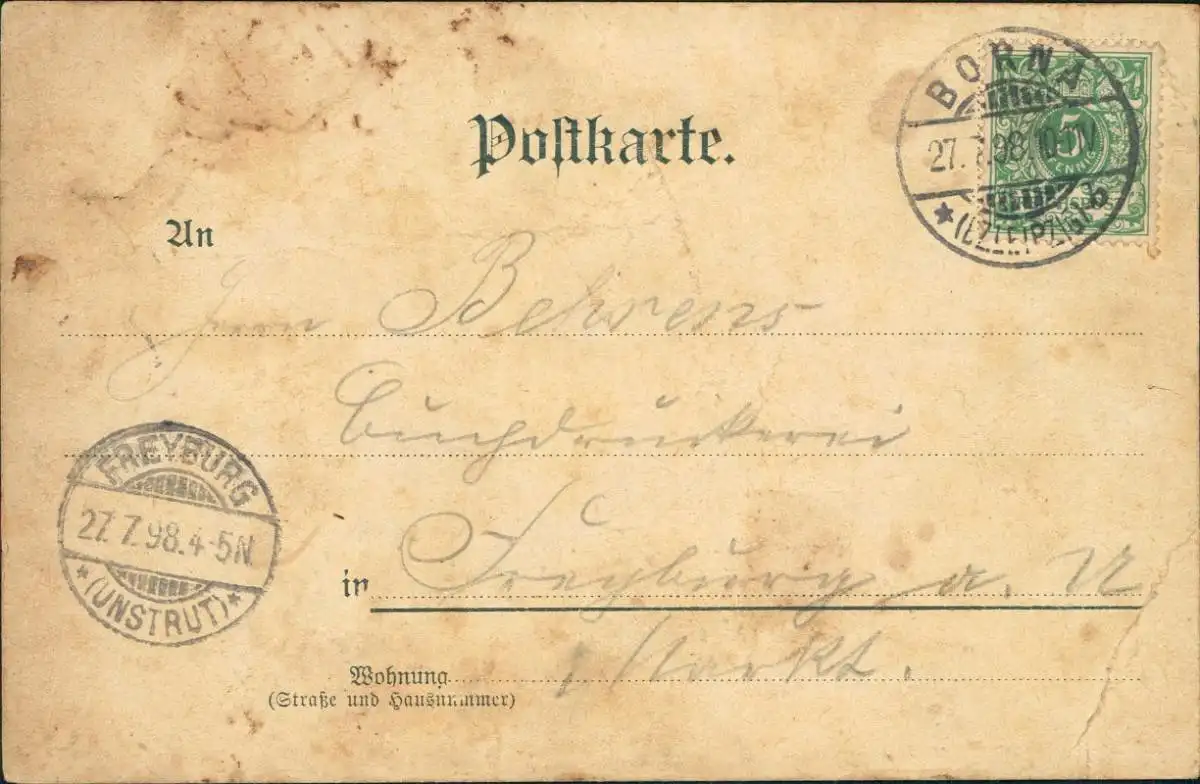 Postkarte.
BORNA
27.7.98.10-11V
* (BZ. LEIPZIG) b
5
PFENNIG
An
Herrn Behrens
Buchdruckerei
in Freyburg a. U
Markt.
FREYBURG
27.7.98.4-5N.
*(UNSTRUT)*
Wohnung
(Straße und Hausnummer)